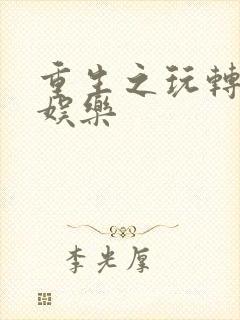 重生之玩轉
娛樂
李光厚